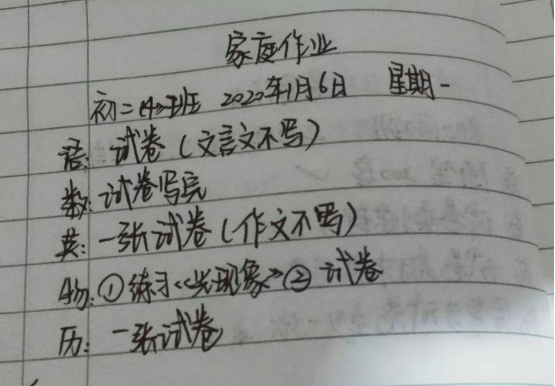 家庭作业
初二<4>班 2020年1月6日 星期一
语: 试卷(文言文不写)
数: 试卷写完
英: 一张试卷(作文不写)
物: ①练习《光现象》② 试卷
历: 一张试卷